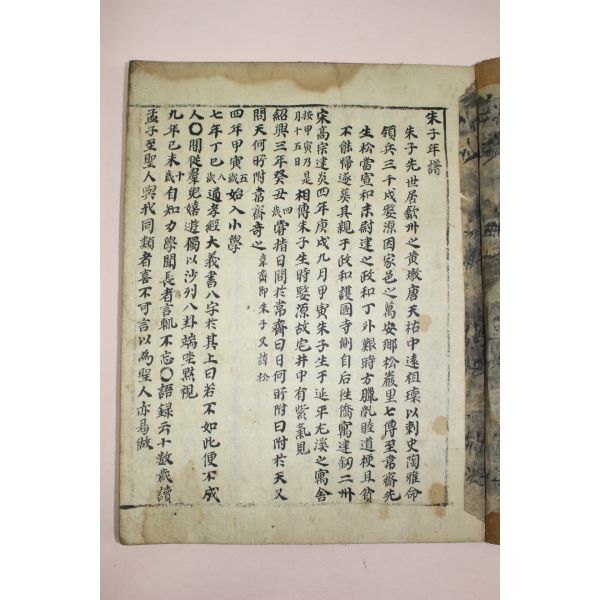 朱子年譜
朱子先世居歙州之黃墩唐天祐中遠祖瓌以刺史陶雅命
領兵三千戍婺源因家邑之萬安鄉松巖里七傳至韋齋先
生松當宣和末尉建之政和丁外艱時方臘亂睦道梗且貧
不能歸遂葬其親于政和護國寺側自后往僑寓建劒二州
宋高宗建炎四年庚戌九月甲寅朱子生于延平尤溪之寓舍
按甲寅乃是月十五日 相傳朱子生時婺源故宅井中有紫氣見
紹興三年癸丑四歲嘗指日問於韋齋曰日何所附曰附於天又
問天何所附韋齋奇之韋齋即朱子父諱松
四年甲寅五歲始入小學
七年丁巳八歲通孝經大義書八字於其上曰若不如此便不成
人〇間從羣兒嬉遊獨以沙列八卦端坐默視
九年己未十歲自知力學聞長者言輒不忘〇語錄云十數歲讀
孟子至聖人與我同類者喜不可言以為聖人亦易做